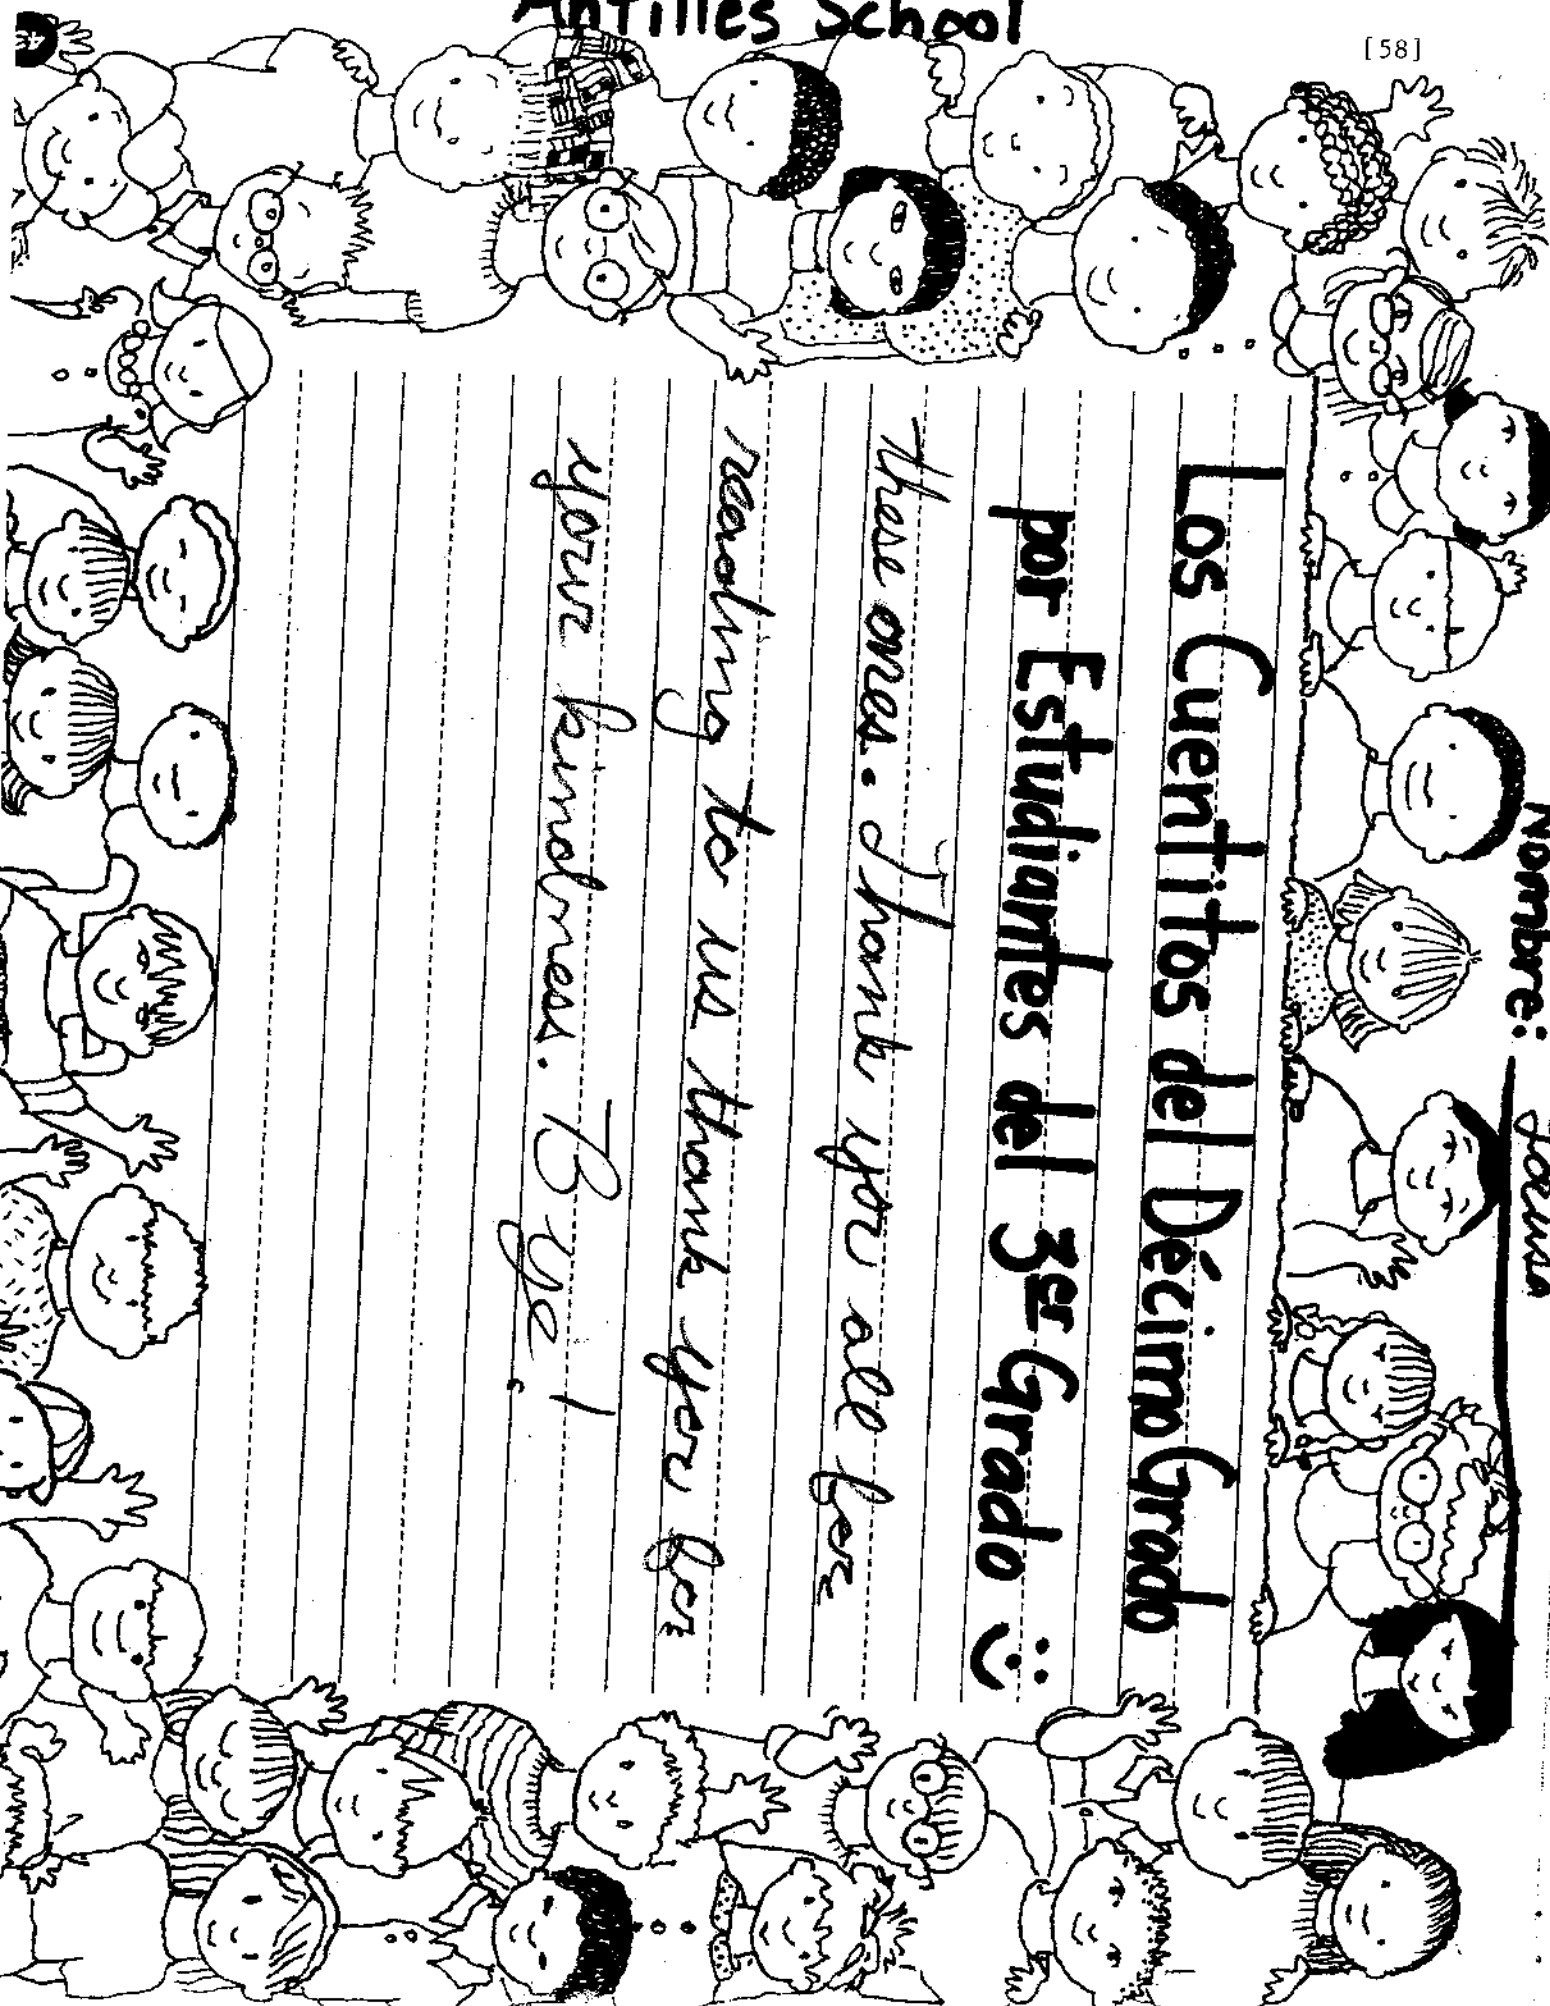 Antilles School
[58]
Nombre:
Los Cuentitos del Décimo Grado
por Estudiantes del 3er Grado
these ones. Thank you all for
reading to us thank you for
your kindnes. Bye!